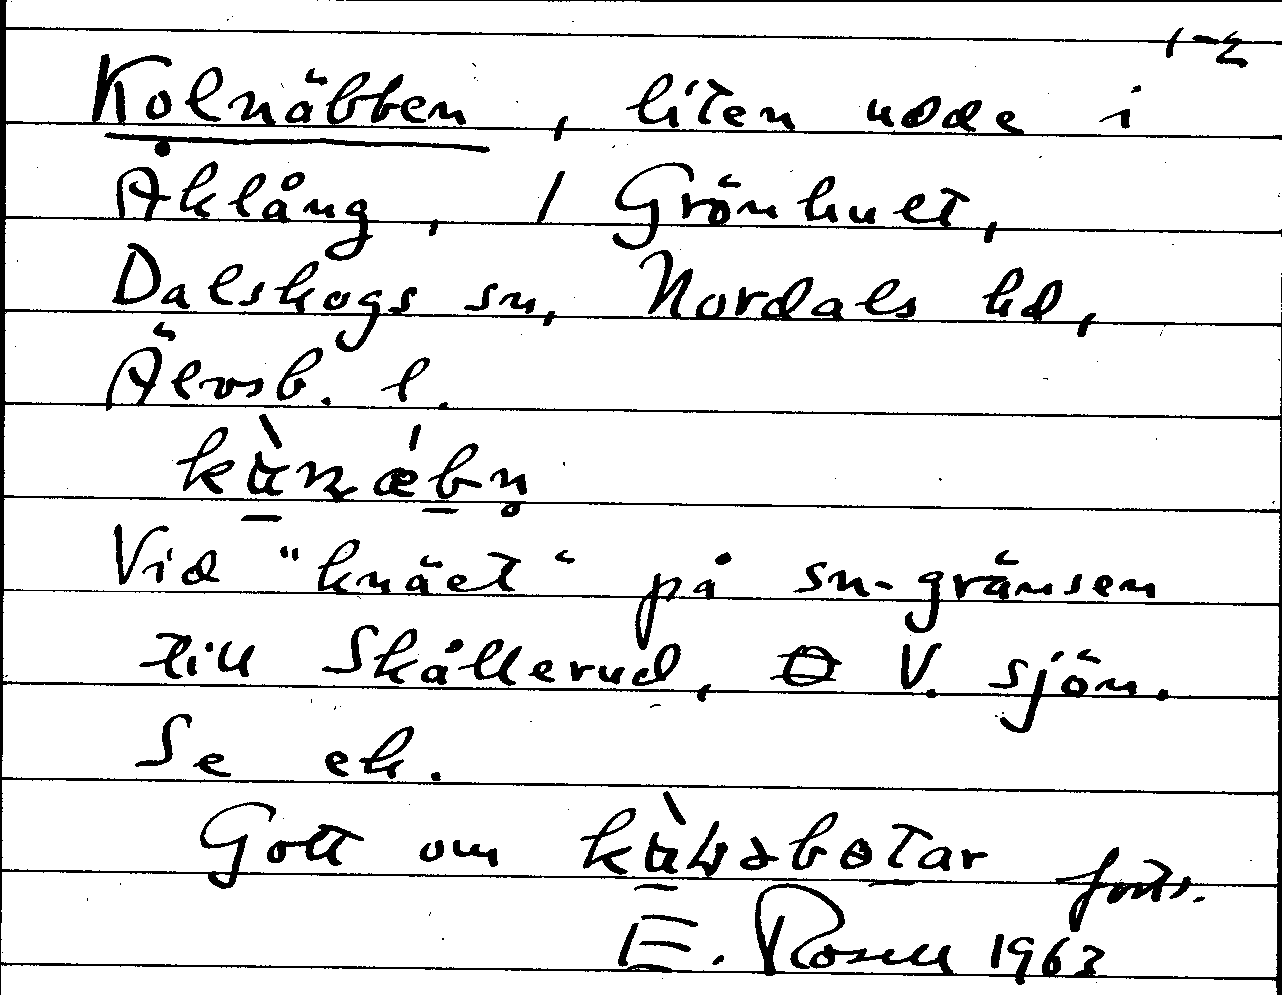 1-2
Kolnäbben, liten udde i
Åklång, / Grönhult,
Dalskogs sn, Nordals hd,
Älvsb. l.
Vid "knäet" på sn-gränsen
till Skållerud, Ö V. sjön.
Se ek.
Gott om
forts.
E. Rosell 1963